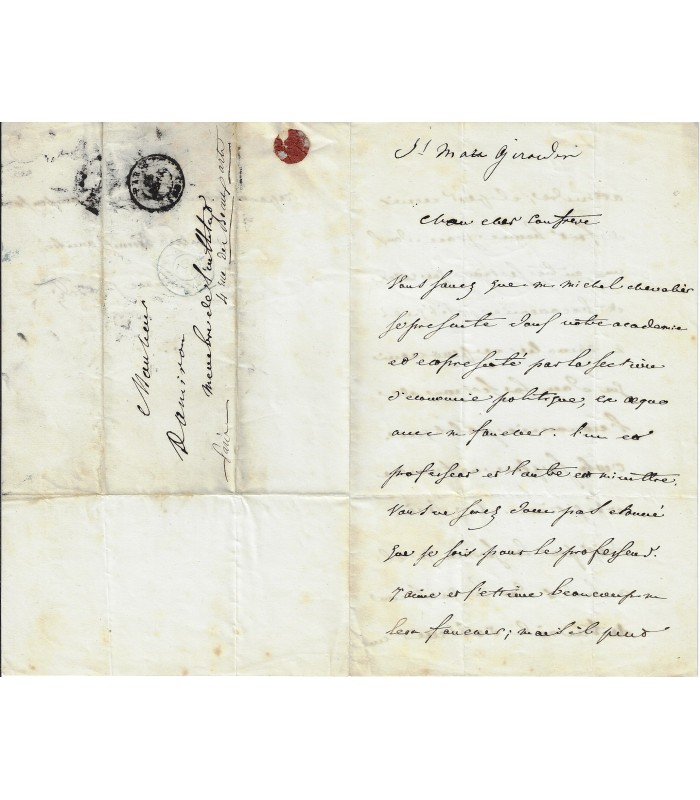 Monsieur
Damiron
membre de l'institut
4 rue des Beaux arts
Paris
St Marc Girardin
Mon cher confrère
Vous savez que m michel chevalier
se presente dans votre academie
et est presenté par la section
d'economie politique, ex aequo
avec m faucher. l'un est
professeur et l'autre est ministre.
Vous ne serez donc pas etonné
que je sois pour le professeur.
J'aime et j'estime beaucoup m
leon faucher; mais il peut